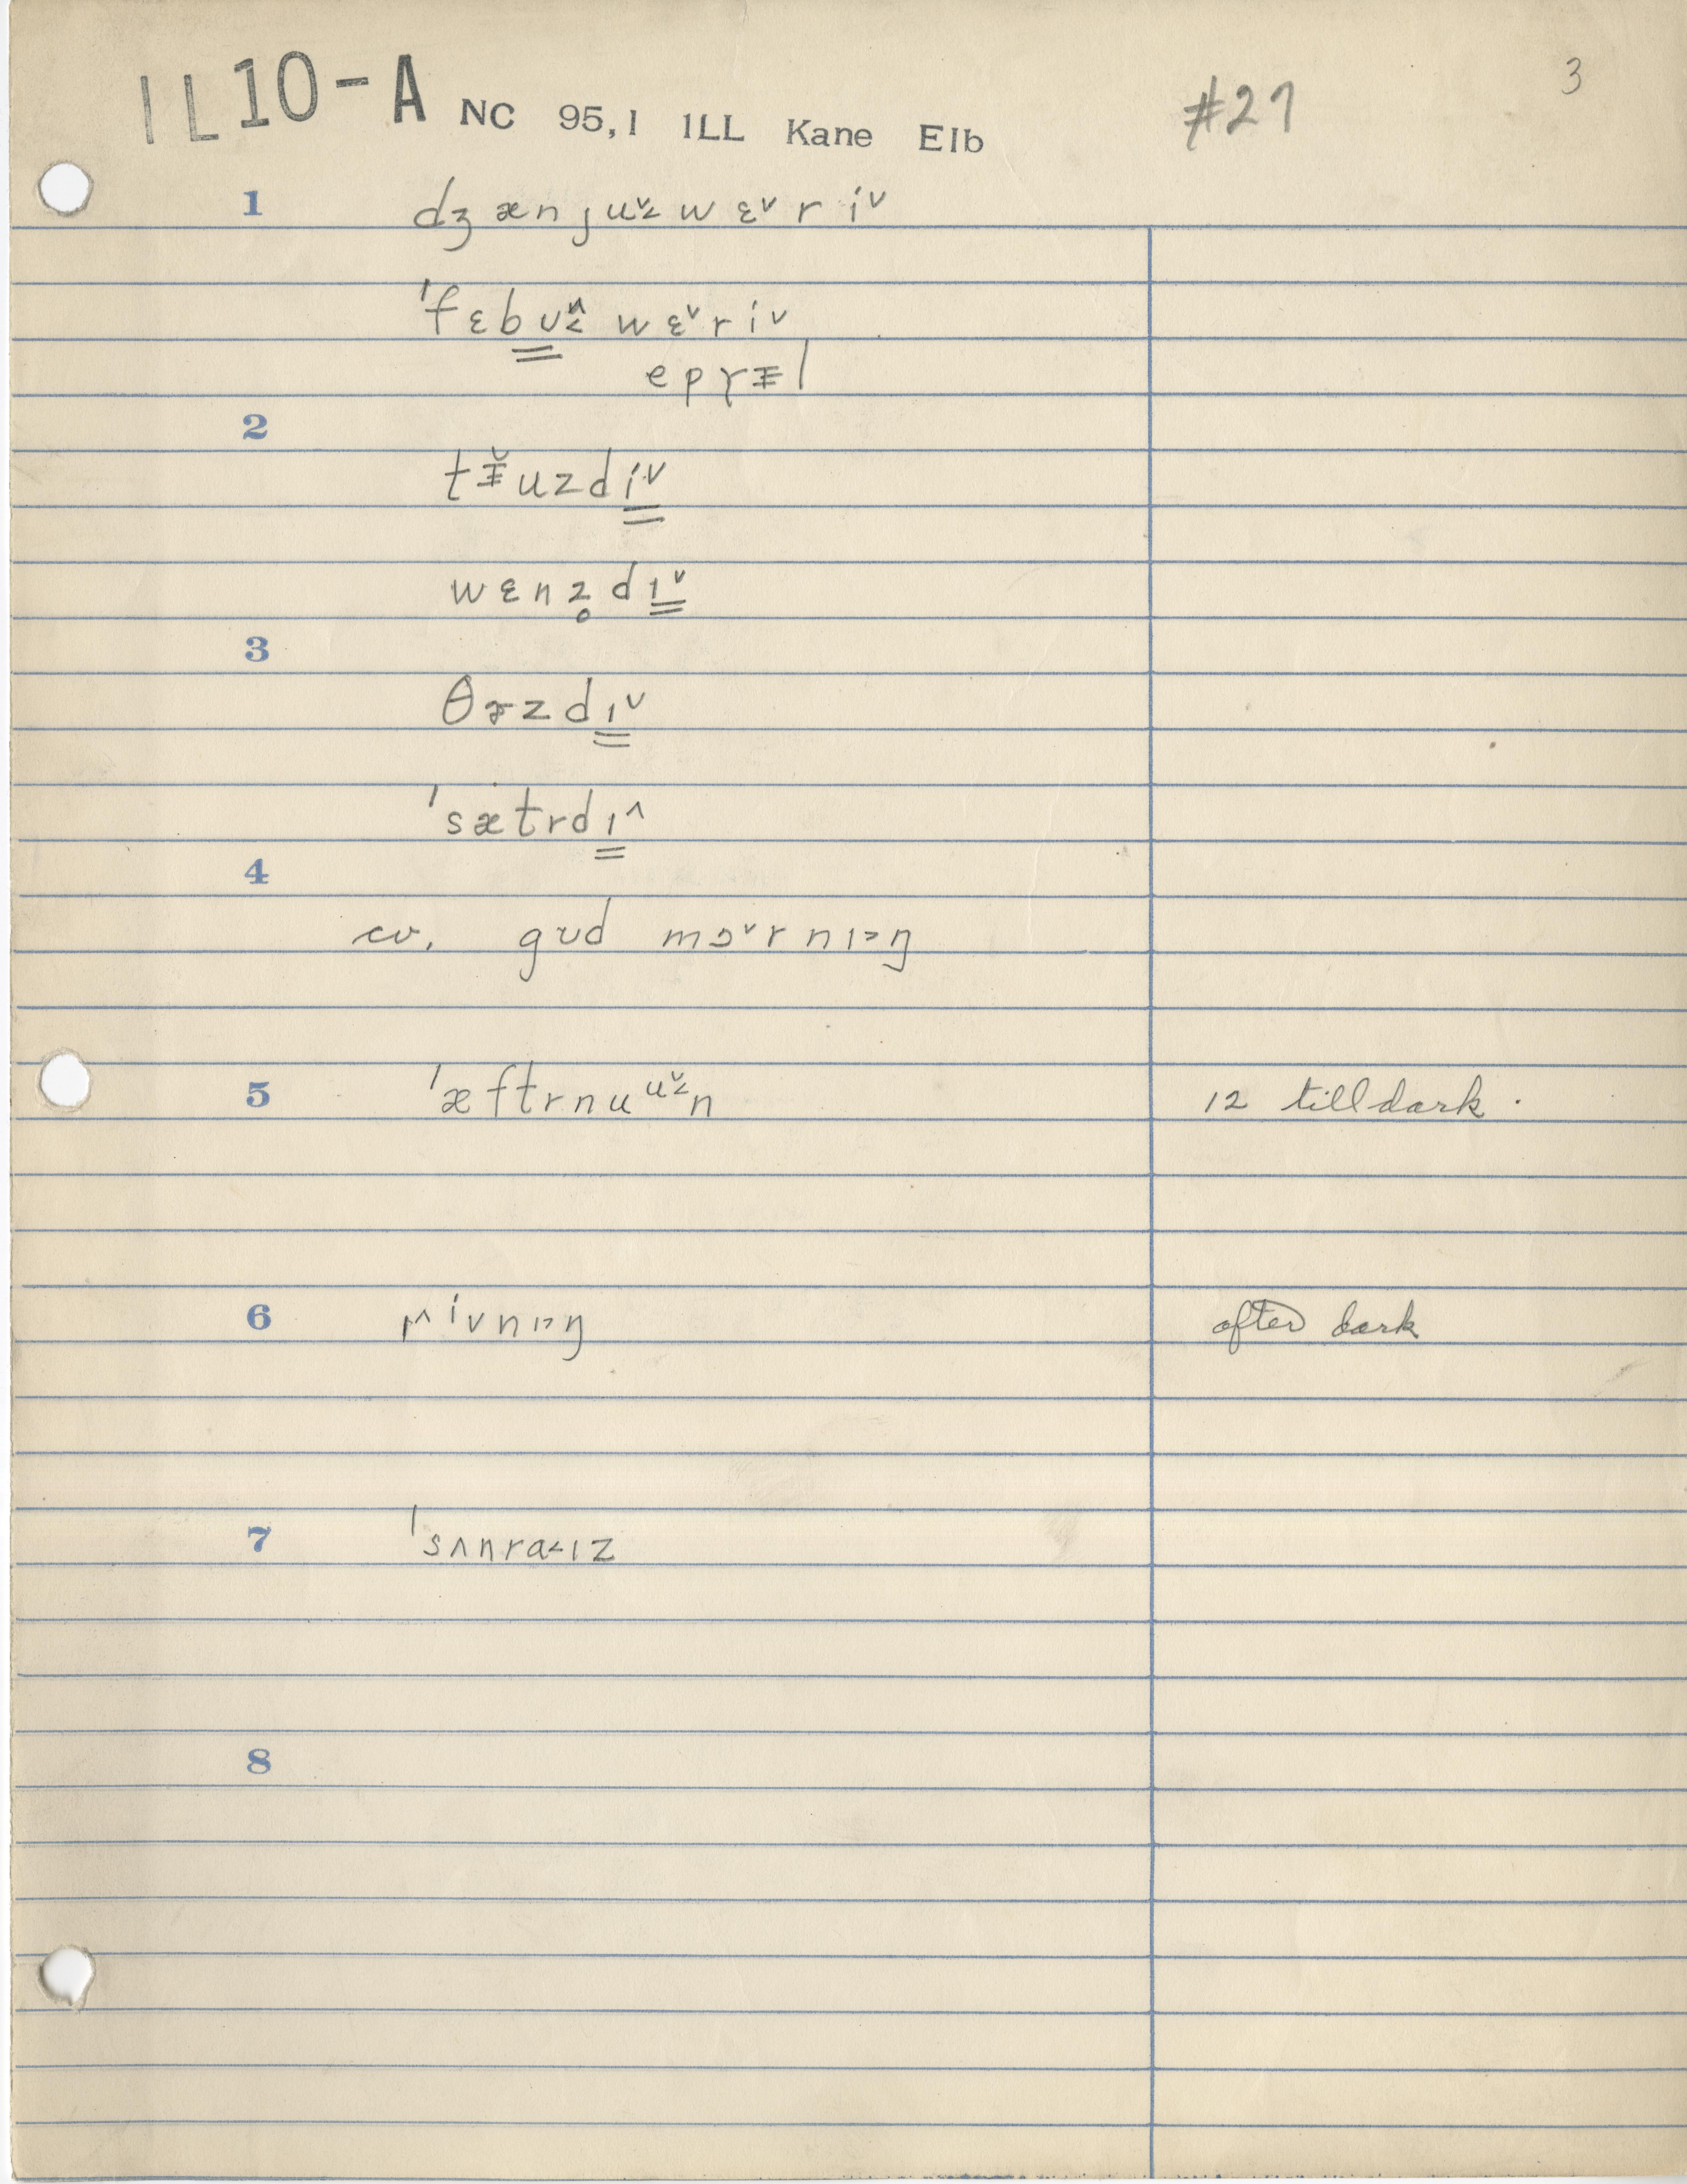 IL10-A NC 95,1 ILL Kane Elb #27 3
1 dʒænjuᵛ˂wɛᵛriᵛ
ˈfɛbʊ˄˂wɛᵛriᵛ
epɹɪ̵l
2
tɪ̵̆uzdiᵛ
wɛnz̥dɪᵛ
3
θɝzdɪᵛ
ˈsætrdɪ˄
4
cv. gʊd mɔᵛrnɪ˃ŋ
5 ˈæftrnuuᵛ˂n 12 till dark.
6 ɪ˄ivnɪ˃ŋ after dark
7 ˈsʌnra˂ɪz
8